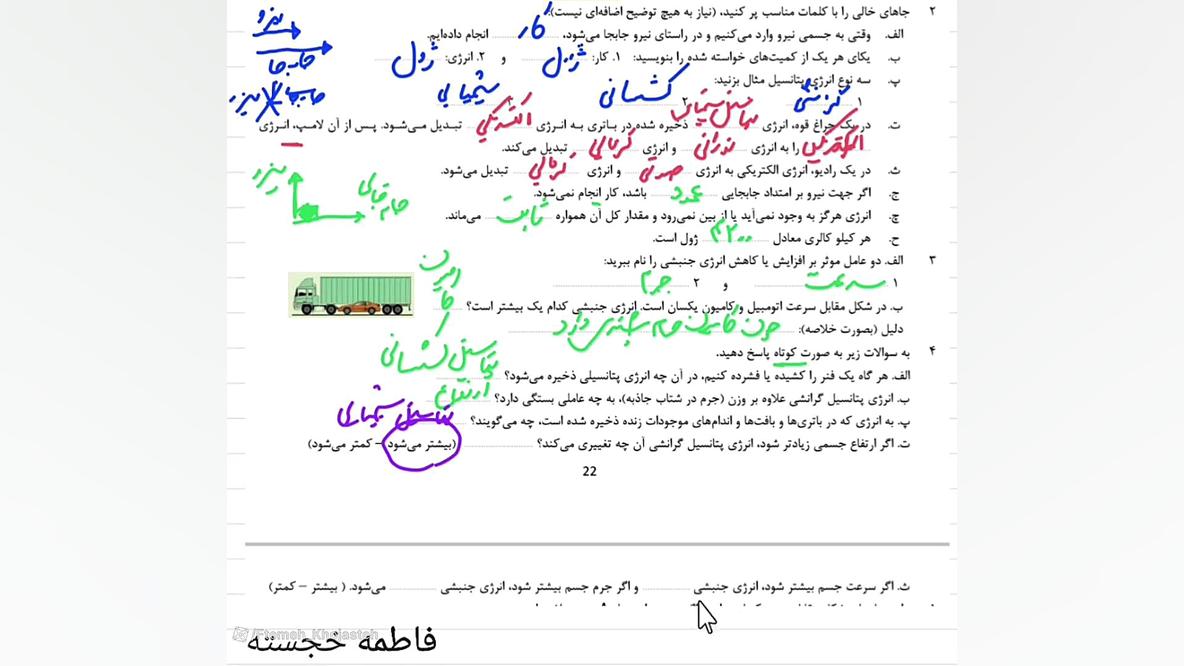 ۲ جاهای خالی را با کلمات مناسب پر کنید، (نیاز به هیچ توضیح اضافه‌ای نیست):
الف. وقتی به جسمی نیرو وارد می‌کنیم و در راستای نیرو جابجا می‌شود، کار انجام داده‌ایم.
ب. یکای هر یک از کمیت‌های خواسته شده را بنویسید: ۱. کار: ژول و ۲. انرژی: ژول
پ. سه نوع انرژی پتانسیل مثال بزنید:
۱ گرانشی ۲ کشسانی ۳ شیمیایی
ت. در یک چراغ قوه، انرژی پتانسیل شیمیایی ذخیره شده در باتری به انرژی الکتریکی تبدیل می‌شود. پس از آن لامپ، انرژی
الکتریکی را به انرژی نورانی و انرژی گرمایی تبدیل می‌کند.
ث. در یک رادیو، انرژی الکتریکی به انرژی صوتی و انرژی گرمایی تبدیل می‌شود.
ج. اگر جهت نیرو بر امتداد جابجایی عمود باشد، کار انجام نمی‌شود.
چ. انرژی هرگز به وجود نمی‌آید یا از بین نمی‌رود و مقدار کل آن همواره ثابت می‌ماند.
ح. هر کیلو کالری معادل ۴۲۰۰ ژول است.
نیرو
جابجا
نیرو جابجا
نیرو
جابه‌جایی
۳ الف. دو عامل موثر بر افزایش یا کاهش انرژی جنبشی را نام ببرید:
۱ سرعت و ۲ جرم
ب. در شکل مقابل سرعت اتومبیل و کامیون یکسان است. انرژی جنبشی کدام یک بیشتر است؟ کامیون
دلیل (بصورت خلاصه): چون کامیون جرم بیشتری دارد
۴ به سوالات زیر به صورت کوتاه پاسخ دهید.
الف. هر گاه یک فنر را کشیده یا فشرده کنیم، در آن چه انرژی پتانسیلی ذخیره می‌شود؟ پتانسیل کشسانی
ب. انرژی پتانسیل گرانشی علاوه بر وزن (جرم در شتاب جاذبه)، به چه عاملی بستگی دارد؟ ارتفاع
پ. به انرژی که در باتری‌ها و بافت‌ها و اندام‌های موجودات زنده ذخیره شده است، چه می‌گویند؟ پتانسیل شیمیایی
ت. اگر ارتفاع جسمی زیادتر شود، انرژی پتانسیل گرانشی آن چه تغییری می‌کند؟ (بیشتر می‌شود – کمتر می‌شود)
22
ث. اگر سرعت جسم بیشتر شود، انرژی جنبشی و اگر جرم جسم بیشتر شود، انرژی جنبشی می‌شود. ( بیشتر – کمتر)
فاطمه خجسته